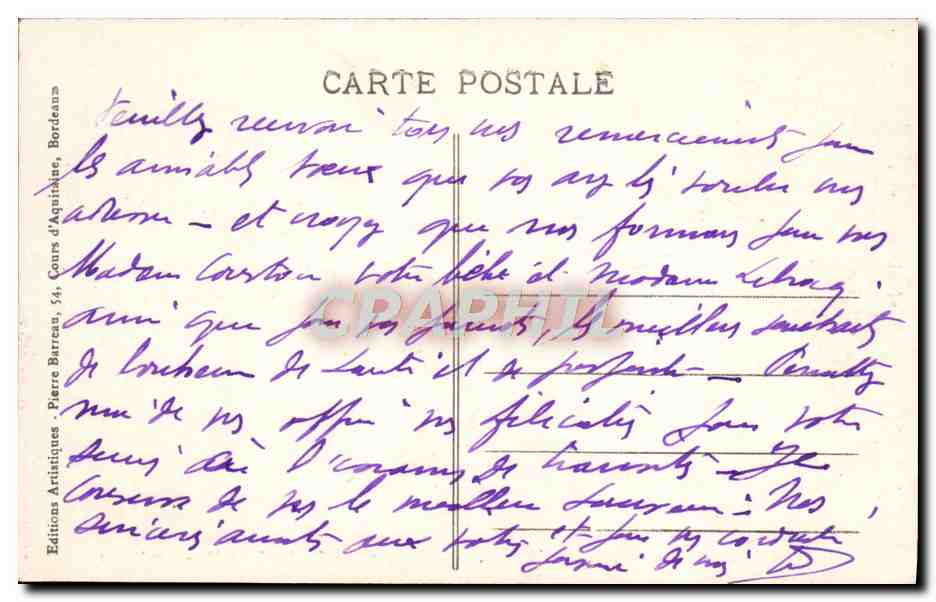 CARTE POSTALE
Veuillez recevoir tous nos remerciements pour
les aimables vœux que vous avez bien voulu nous
adresser – et croyez que nous formons pour vous
Madame votre bébé et Madame
ainsi que pour vos parents, les meilleurs souhaits
de bonheur de santé et de prospérité – Permettez
moi de vous offrir mes félicitations pour votre
succès à l'examen de – Je
conserve de vous le meilleur souvenir. Nos
sincères amitiés aux vôtres et pour vous cordiale
de moi
Editions Artistiques - Pierre Barreau, 54, Cours d'Aquitaine, Bordeaux
CPAPHIL